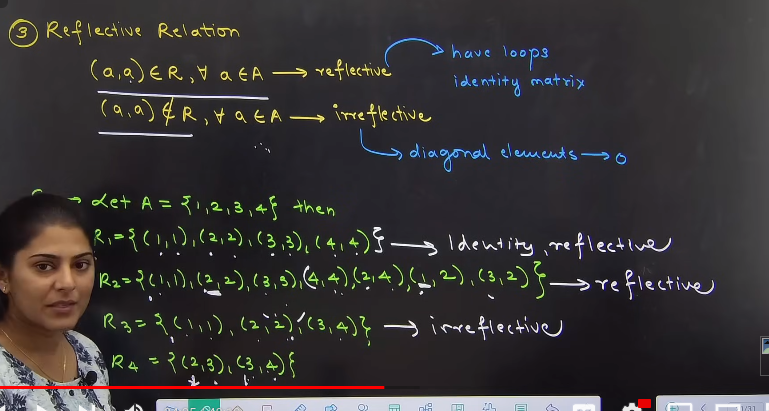 ③ Reflective Relation
(a,a) ∈ R, ∀ a ∈ A → reflective
have loops
identity matrix
(a,a) ∉ R, ∀ a ∈ A → irreflective
diagonal elements → 0
→ Let A = {1,2,3,4} then
R1 = {(1,1), (2,2), (3,3), (4,4)} → Identity, reflective
R2 = {(1,1), (2,2), (3,3), (4,4), (2,4), (1,2), (3,2)} → reflective
R3 = {(1,1), (2,2), (3,4)} → irreflective
R4 = {(2,3), (3,4)}